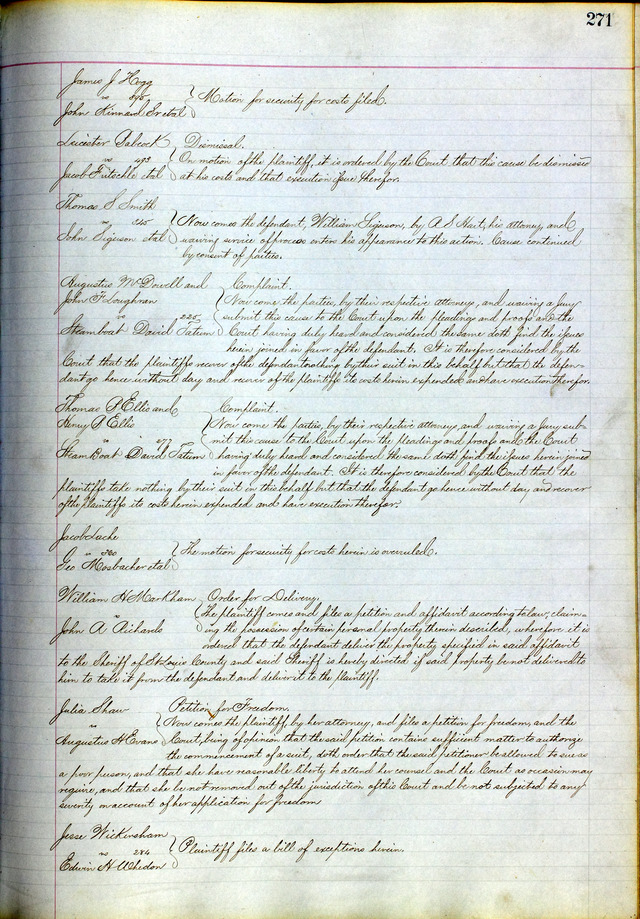 271
James J Hogg
vs 395
John Kinnard Sr et al
Motion for security for costs filed.
Leicester Babcock
vs 493
Jacob Fritschle et al
Dismissal.
On motion of the plaintiff, it is ordered by the Court, that this cause be dismissed
at his costs and that execution issue therefor.
Thomas S Smith
vs 245
John Siguson et al
Now comes the defendant, William Siguson, by A S Hart, his attorney, and
waiving service of process enters his appearance to this action. Cause continued
by consent of parties.
Augustus McDowell and
John T Loughran
vs 225
Steamboat David Tatum
Complaint.
Now come the parties, by their respective attorneys, and waiving a jury
submit this cause to the Court upon the pleadings and proofs and the
Court having duly heard and considered the same doth find the issues
herein joined in favor of the defendant. It is therefore considered by the
Court that the plaintiffs recover of the defendant nothing by their suit in this behalf but that the defen-
dant go hence without day and recover of the plaintiffs its costs herein expended and have execution therefor.
Thomas P Ellis and
Henry P Ellis
vs 277
Steam Boat David Tatum
Complaint.
Now come the parties, by their respective attorneys, and waiving a jury sub-
mit this cause to the Court upon the pleadings and proofs and the Court
having duly heard and considered the same doth find the issues herein joined
in favor of the defendant. It is therefore considered by the Court that the
plaintiffs take nothing by their suit in this behalf but that the defendant go hence without day and recover
of the plaintiffs its costs herein expended and have execution therefor.
Jacob Lache
vs 380
Geo Mosbacher et al
The motion for security for costs herein is overruled.
William H Markham
vs
John A Richards
Order for Delivery.
The plaintiff comes and files a petition and affidavit according to law, claim-
ing the possession of certain personal property therein described, wherefore it is
ordered that the defendant deliver the property specified in said affidavit
to the Sheriff of St Louis County and said Sheriff is hereby directed if said property be not delivered to
him to take it from the defendant and deliver it to the plaintiff.
Julia Shaw
vs
Augustus H Evans
Petition for Freedom.
Now comes the plaintiff, by her attorney, and files a petition for freedom, and the
Court, being of opinion that the said petition contains sufficient matter to authorize
the commencement of a suit, doth order that the said petitioner be allowed to sue as
a poor person, and that she have reasonable liberty to attend her counsel and the Court as occasion may
require, and that she be not removed out of the jurisdiction of this Court and be not subjected to any
severity on account of her application for freedom
Jesse Wickersham
vs 284
Edwin H Whedon
Plaintiff files a bill of exceptions herein.